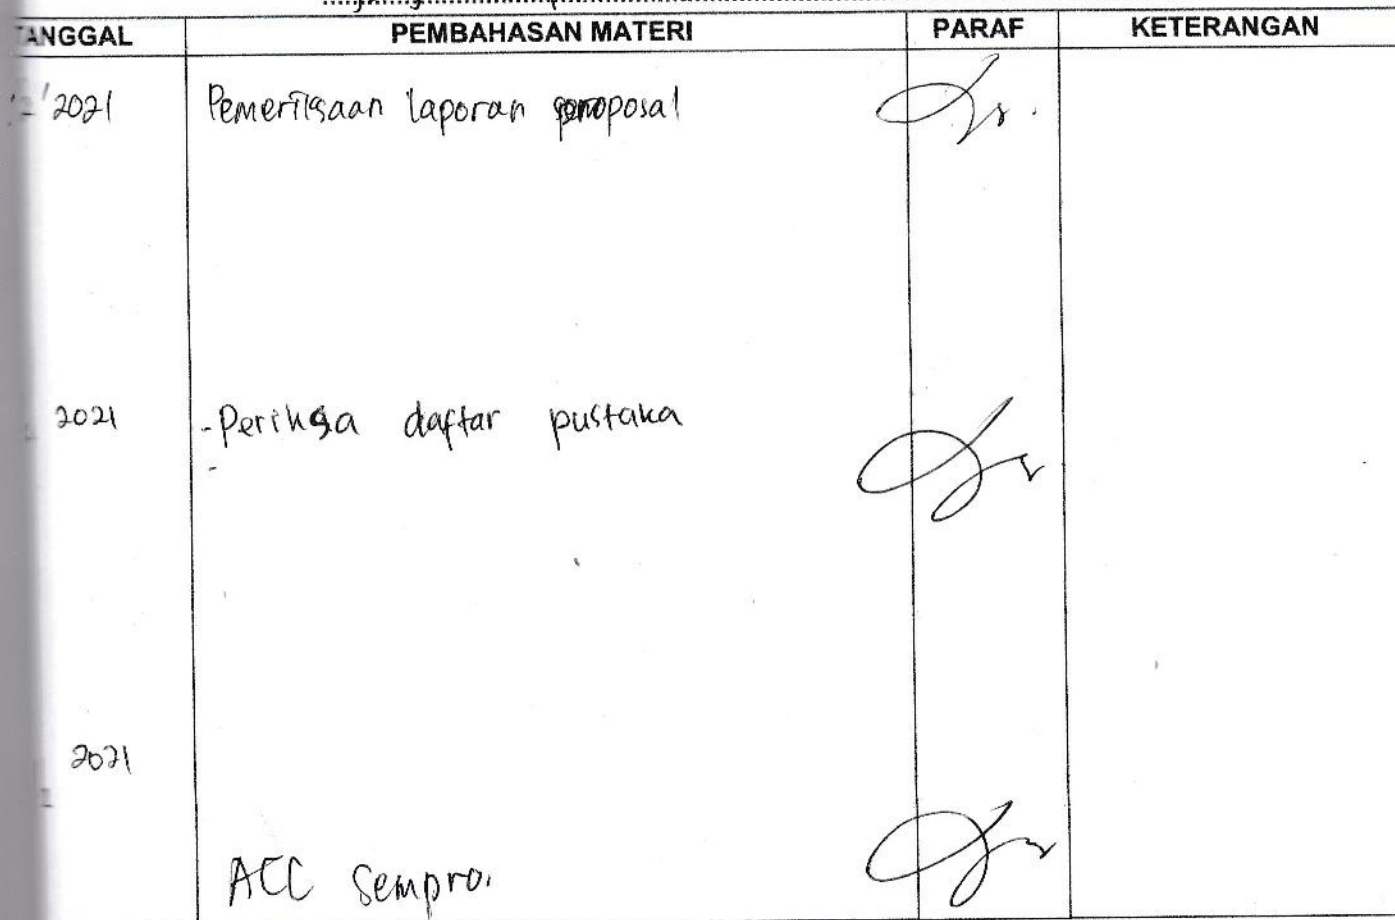 TANGGAL PEMBAHASAN MATERI PARAF KETERANGAN
2021 Pemeriksaan laporan proposal
2021 - Periksa daftar pustaka
-
2021
ACC Sempro.